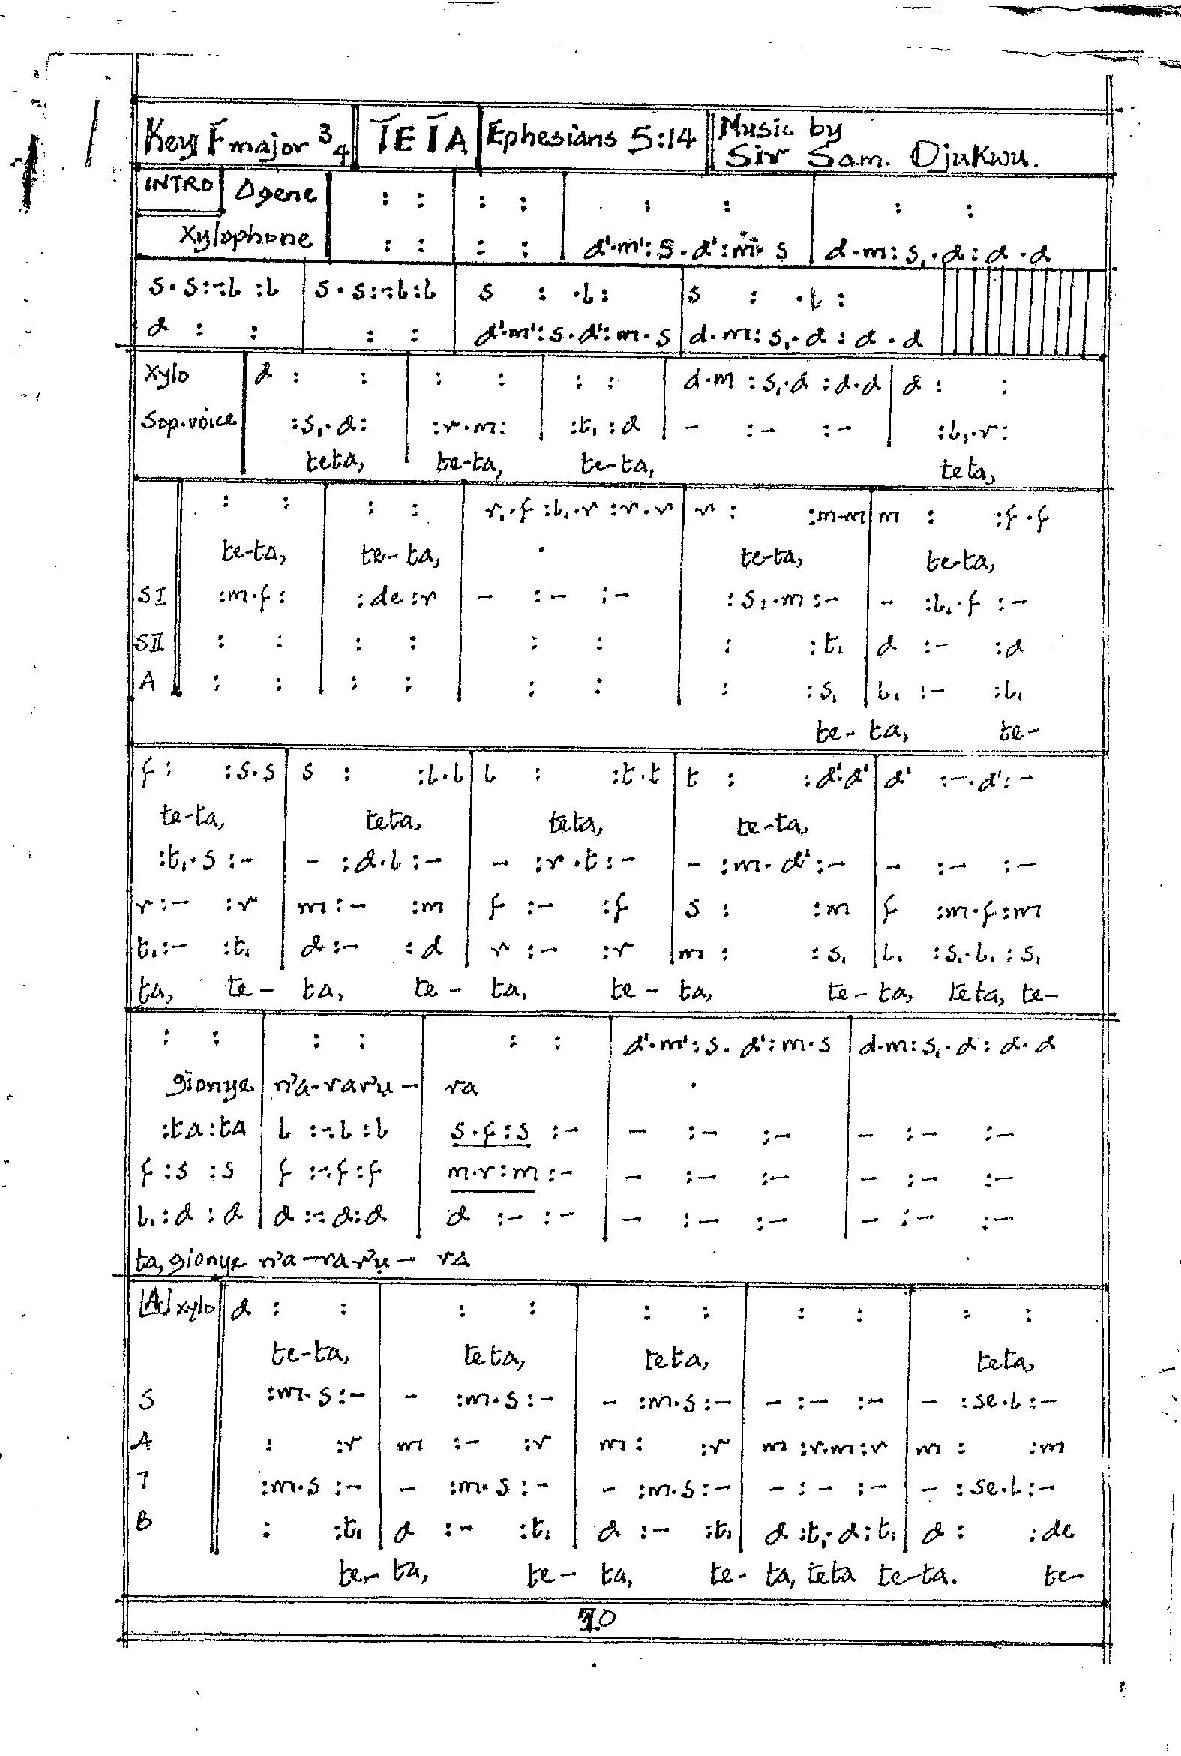 Key F major 3/4 TETA Ephesians 5:14 Music by Sir Sam. Ojukwu.
INTRO Ogene : : : : : : : :
Xylophone : : : : d'.m':s.d':m'.s d.m:s,.d:d.d
s.s:-.l:l s.s:-.l:l s : .l: s : .l:
d : : : : d'.m':s.d':m.s d.m:s,.d:d.d
Xylo d : : : : : : d.m:s,.d:d.d d : :
Sop.voice :s,.d: :r.m: :t,:d - :- :- :l,.r:
teta, te-ta, te-ta, teta,
: : : : r,.f:l,.r:r.r r : :m.m m : :f.f
te-ta, te-ta, te-ta, te-ta,
SI :m.f: :de:r - :- :- :s,.m:- - :l,.f:-
SII : : : : : : : :t, d :- :d
A : : : : : : : :s, l, :- :l,
te-ta, te-
f : :s.s s : :l.l l : :t.t t : :d'.d' d' :-.d':-
te-ta, teta, teta, te-ta,
:t,.s:- - :d.l:- - :r.t:- - :m.d':- - :- :-
r:- :r m:- :m f :- :f s : :m f :m.f:m
t,:- :t, d:- :d r :- :r m : :s, l, :s,.l,:s,
ta, te-ta, te-ta, te-ta, te-ta, teta, te-
: : : : : : d'.m':s.d':m.s d.m:s,.d:d.d
gionye n'a-raru- ra
:ta:ta l :-.l:l s.f:s :- - :- :- - :- :-
f :s :s f :-.f:f m.r:m :- - :- :- - :- :-
l,:d :d d :-.d:d d :- :- - :- :- - :- :-
ta, gionye n'a-raru- ra
[A] xylo d : : : : : : : : : :
te-ta, teta, teta, teta,
S :m.s:- - :m.s:- - :m.s:- - :- :- - :se.l:-
A : :r m :- :r m : :r m :r.m:r m : :m
T :m.s:- - :m.s:- - :m.s:- - :- :- - :se.l:-
B : :t, d :- :t, d :- :t, d :t,.d:t, d : :de
te-ta, te-ta, te-ta, teta te-ta. te-